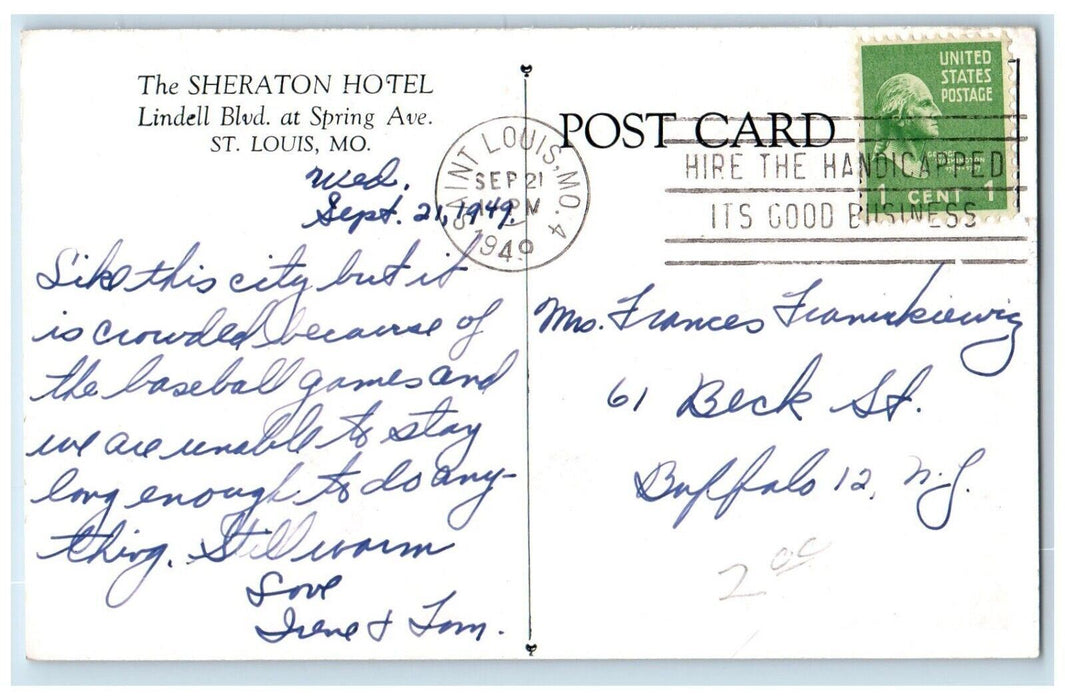 The SHERATON HOTEL
Lindell Blvd. at Spring Ave.
ST. LOUIS, MO.
Wed.
Sept. 21, 1949.
Like this city but it
is crowded because of
the baseball games and
we are unable to stay
long enough to do any-
thing. Still warm
Love
Irene & Tom.
POST CARD
SAINT LOUIS, MO. 4
SEP 21
PM
1949
HIRE THE HANDICAPPED
ITS GOOD BUSINESS
UNITED
STATES
POSTAGE
GEORGE
WASHINGTON
1 CENT 1
Mrs. Frances
61 Beck St.
Buffalo 12, N.Y.
2 00